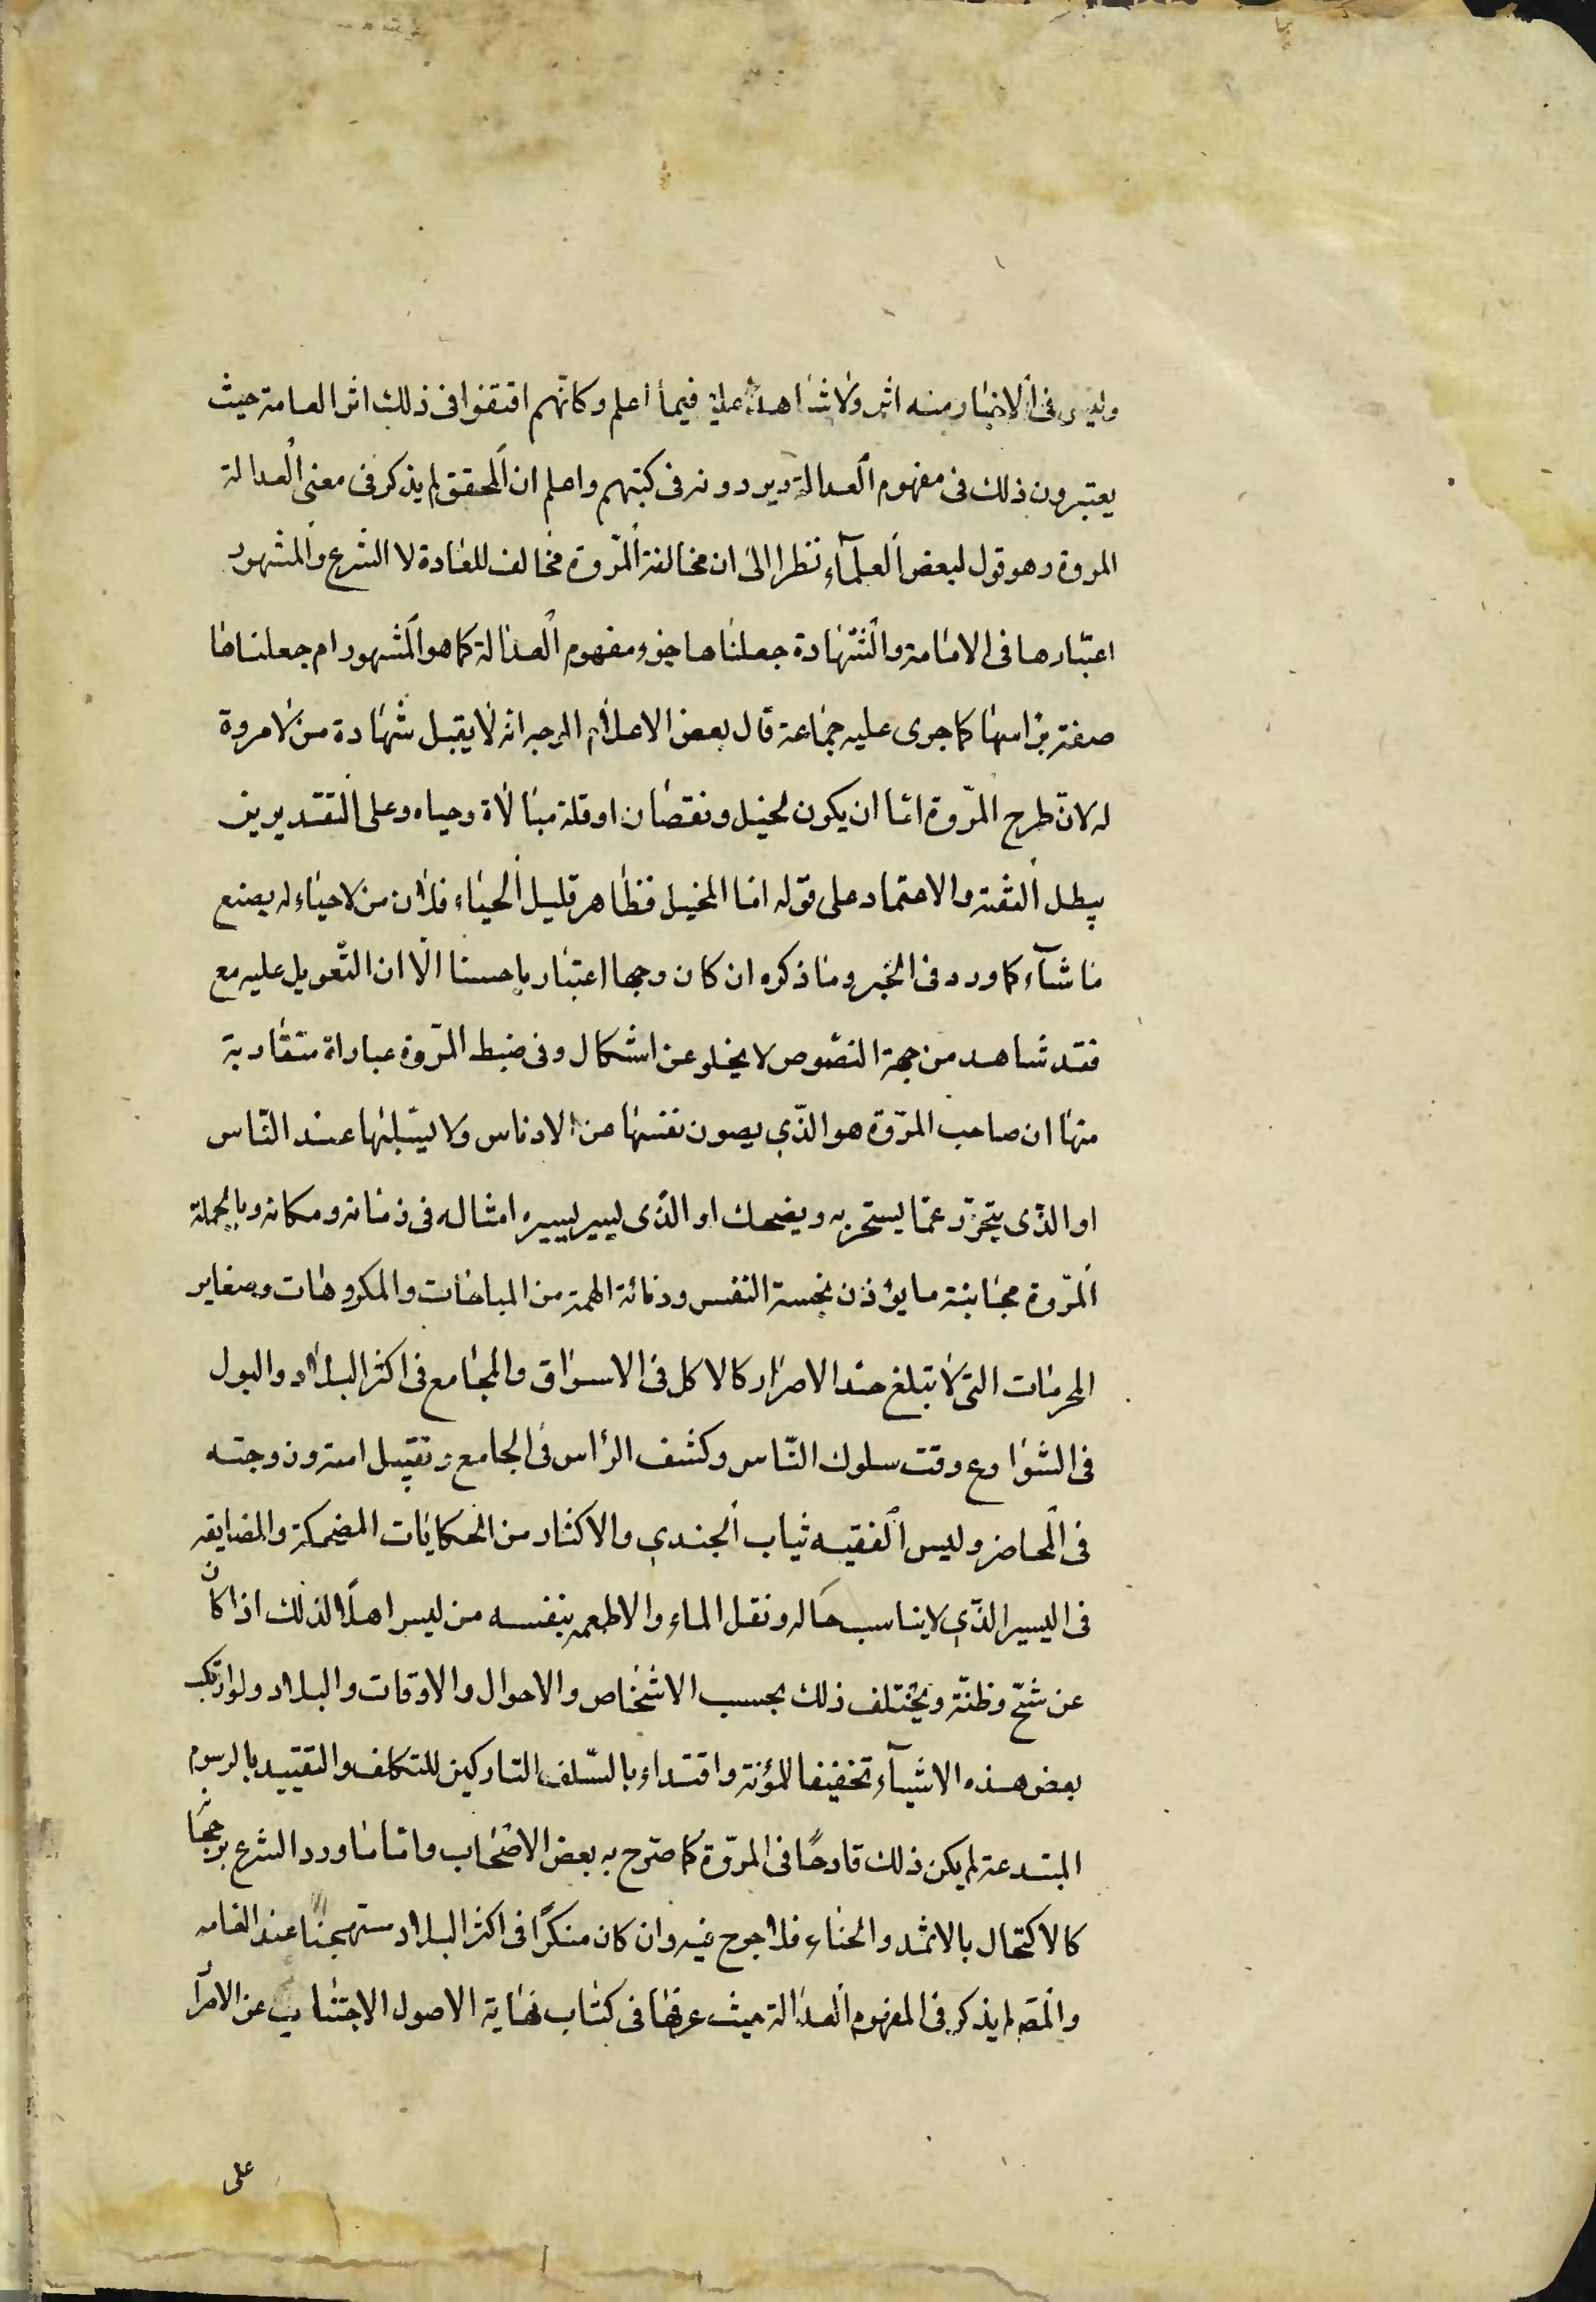 وليس فى الاخبار منه اثر ولا شاهد عليه فيما اعلم وكانّهم اقتفوا فى ذلك اثر العامة حيث
يعتبرون ذلك فى مفهوم العدالة ويوردونه فى كتبهم واعلم ان المحقق لم يذكر فى معنى العدالة
المروة وهو قول لبعض العلمآء نظرا الى ان مخالفة المرّوة مخالف للعادة لا الشرع والمشهور
اعتبارها فى الامامة والشّهادة جعلناها جزء مفهوم العدالة كما هو المشهور ام جعلناها
صفة براسها كما جرى عليه جماعة قال بعض الاعلام الوجه انه لا يقبل شهادة من لا مروة
له لانّ طرح المرّوة امّا ان يكون لخبل ونقصان او قلة مبالاة وحياء وعلى التقديرين
يبطل الثقة والاعتماد على قوله اما المخبل فظاهر قليل الحياء فلان من لا حياء له يصنع
ما شآء كما ورد فى الخبر وما ذكره ان كان وجها اعتباريا حسنا الّا ان التّعويل عليه مع
فقد شاهد من جهة النصّوص لا يخلو عن اشكال وفى ضبط المرّوة عباراة متقاربة
منها ان صاحب المرّوة هو الذّي يصون نفسها عن الادناس ولا يبتلها عند النّاس
او الذّى يتجرّد عمّا يسخر به ويضحك او الذّى يسير بسيره امثاله فى زمانه ومكانه وبالجملة
المرّوة مجانبة ما يؤذن بخسة النفس ودنائة الهمة من المباحات والمكروهات وصغاير
المحرمات التى لا تبلغ حد الاصرار كالاكل فى الاسواق والمجامع فى اكثر البلاد والبول
فى الشوارع وقت سلوك النّاس وكشف الرأس فى الجامع وتقبيل امته وزوجته
فى المحاضر ولبس الفقيه ثياب الجندي والاكثار من الحكايات المضحكة والمضايقه
فى اليسير الذّي لا يناسب حاله ونقل الماء والاطعمه بنفسه من ليس اهلًا لذلك اذا كان
عن شحّ وظنّة ويختلف ذلك بحسب الاشخاص والاحوال والاوقات والبلاد ولو ارتكب
بعض هذه الاشيآء تخفيفا للمؤنة واقتداء بالسّلف التاركين للتكلف والتقييد بالرسوم
المبتدعة لم يكن ذلك قادحًا فى المرّوة كما صّرح به بعض الاصحاب وامّا ما ورد الشرع برجحانه
كالاكتحال بالاثمد والحناء فلا حرج فيه وان كان منكرًا فى اكثر البلاد مستهجنًا عند العامه
والمصّ لم يذكر فى المفهوم العدالة حيث عرفها فى كتاب نهاية الاصول الاجتناب عن الامرا
على